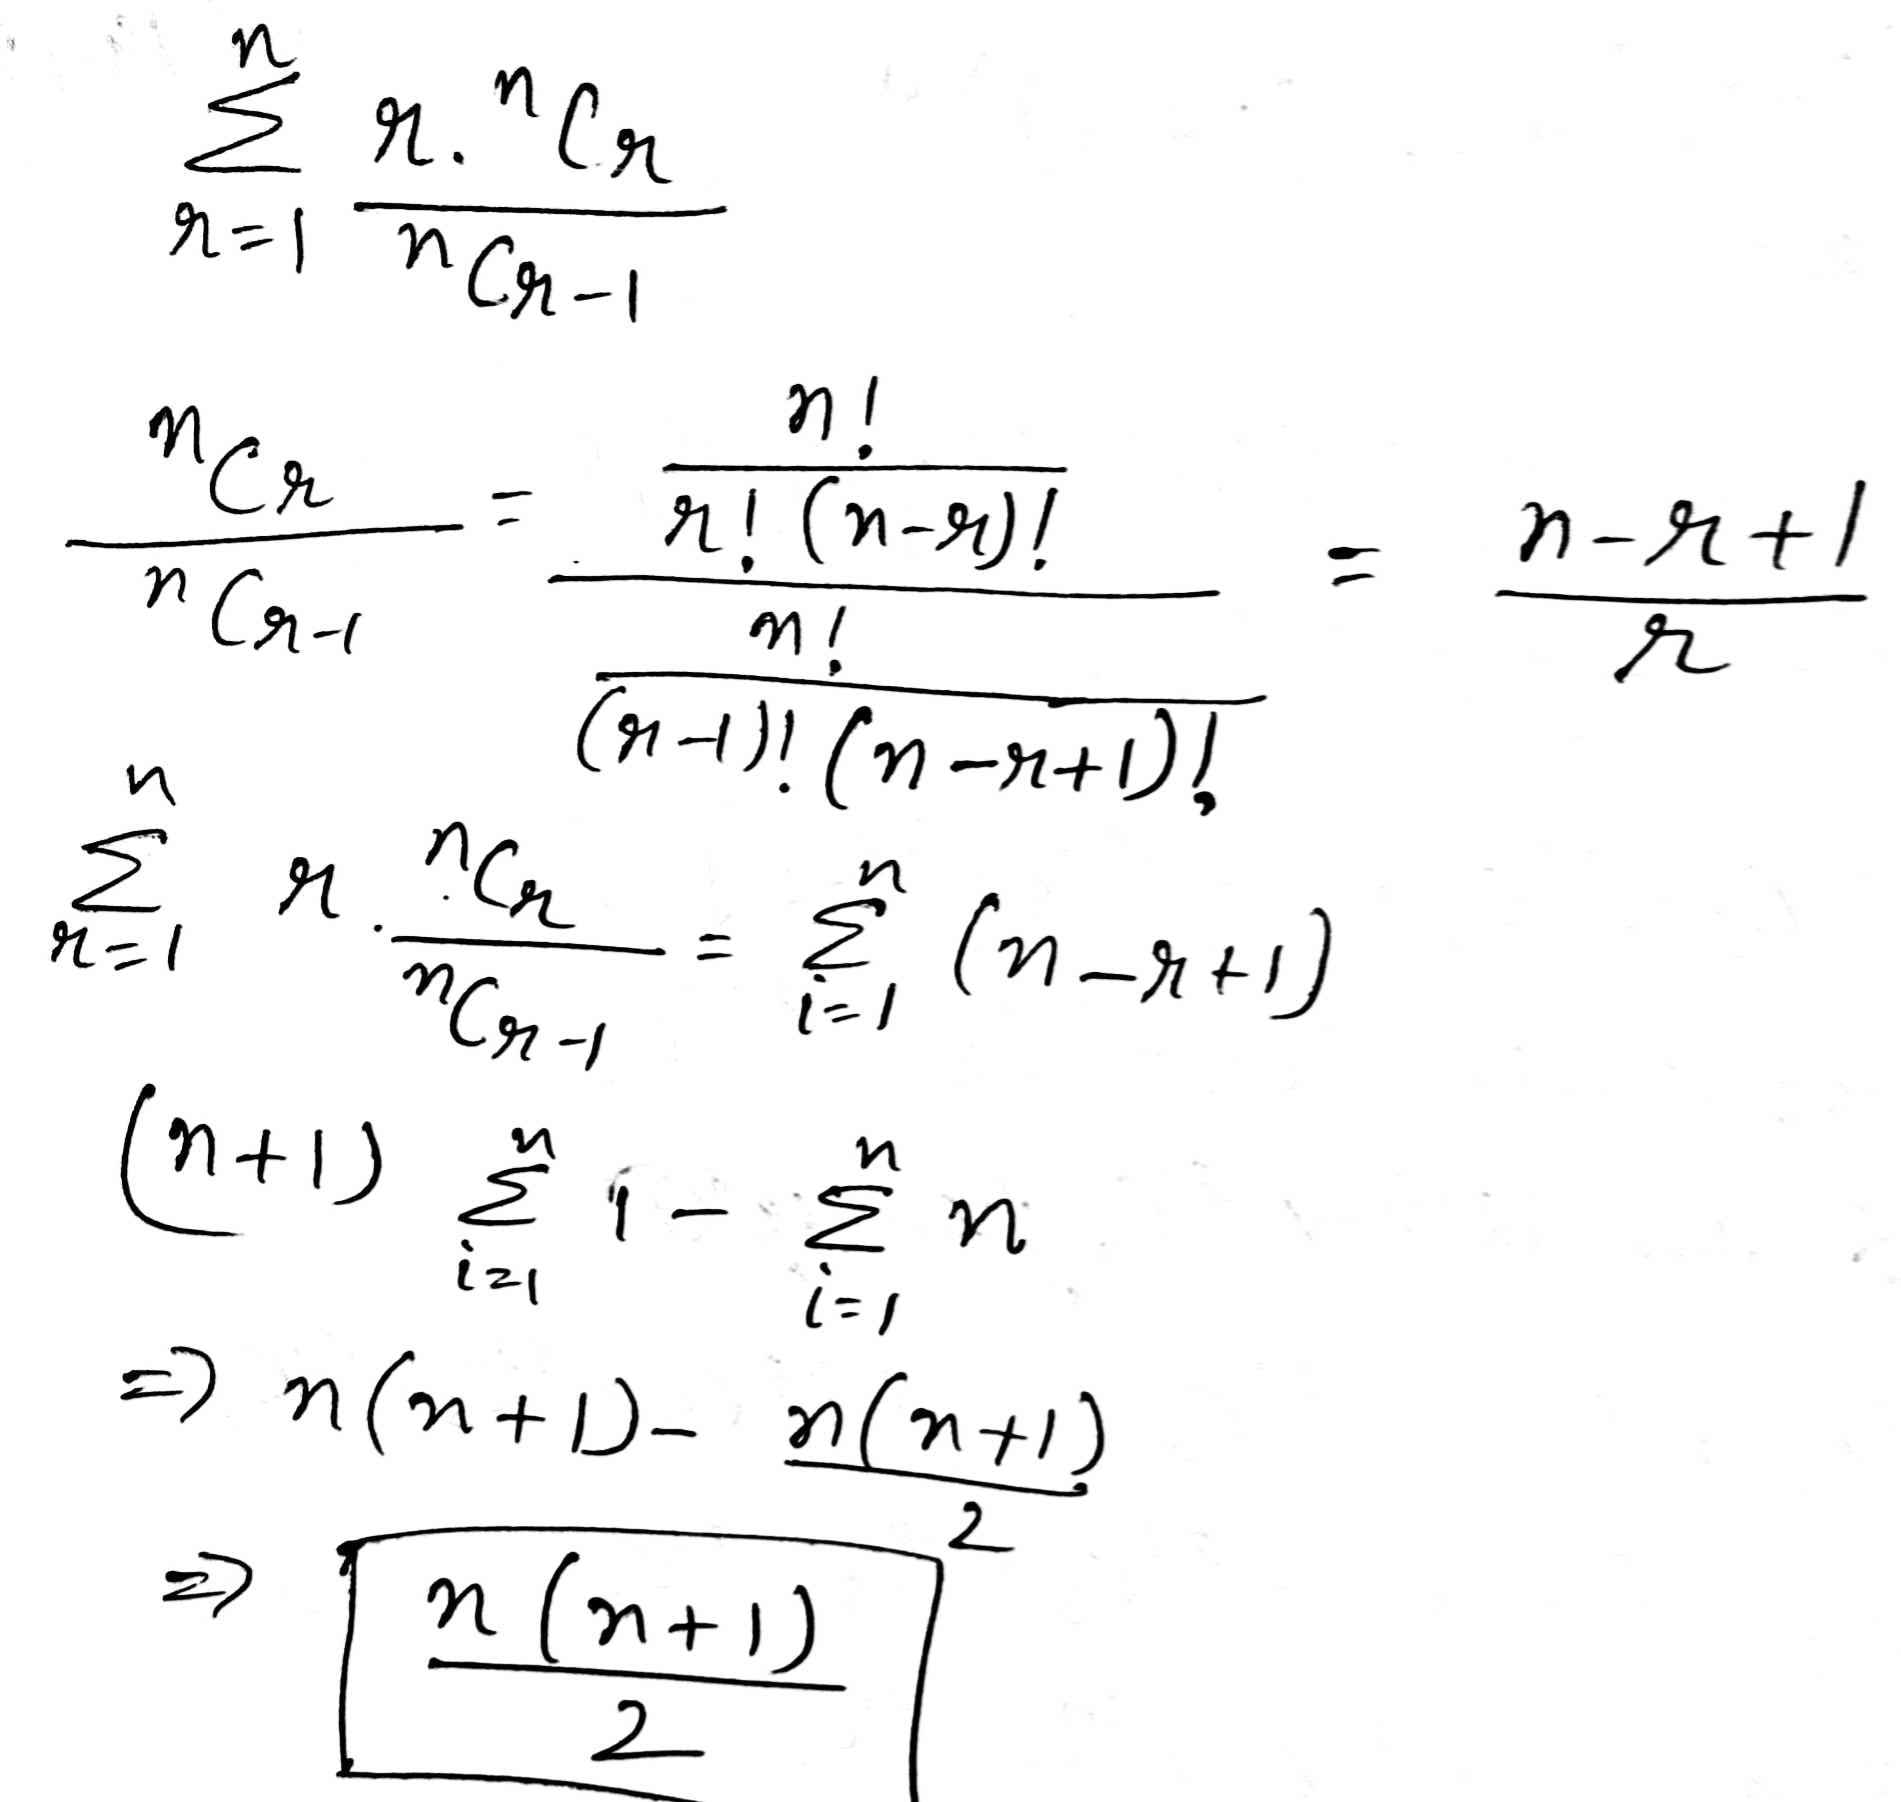 \sum_{r=1}^{n} \frac{r \cdot {}^{n}C_{r}}{{}^{n}C_{r-1}}
\frac{{}^{n}C_{r}}{{}^{n}C_{r-1}} = \frac{\frac{n!}{r!(n-r)!}}{\frac{n!}{(r-1)!(n-r+1)!}} = \frac{n-r+1}{r}
\sum_{r=1}^{n} r \cdot \frac{{}^{n}C_{r}}{{}^{n}C_{r-1}} = \sum_{i=1}^{n} (n-r+1)
(n+1) \sum_{i=1}^{n} 1 - \sum_{i=1}^{n} n
\Rightarrow n(n+1) - \frac{n(n+1)}{2}
\Rightarrow \boxed{\frac{n(n+1)}{2}}